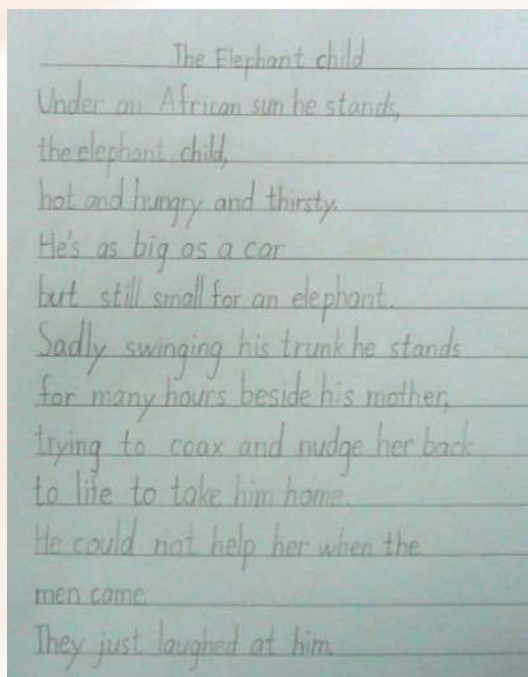 The Elephant child
Under an African sun he stands,
the elephant child,
hot and hungry and thirsty.
He's as big as a car
but still small for an elephant.
Sadly swinging his trunk he stands
for many hours beside his mother,
trying to coax and nudge her back
to life to take him home.
He could not help her when the
men came.
They just laughed at him.